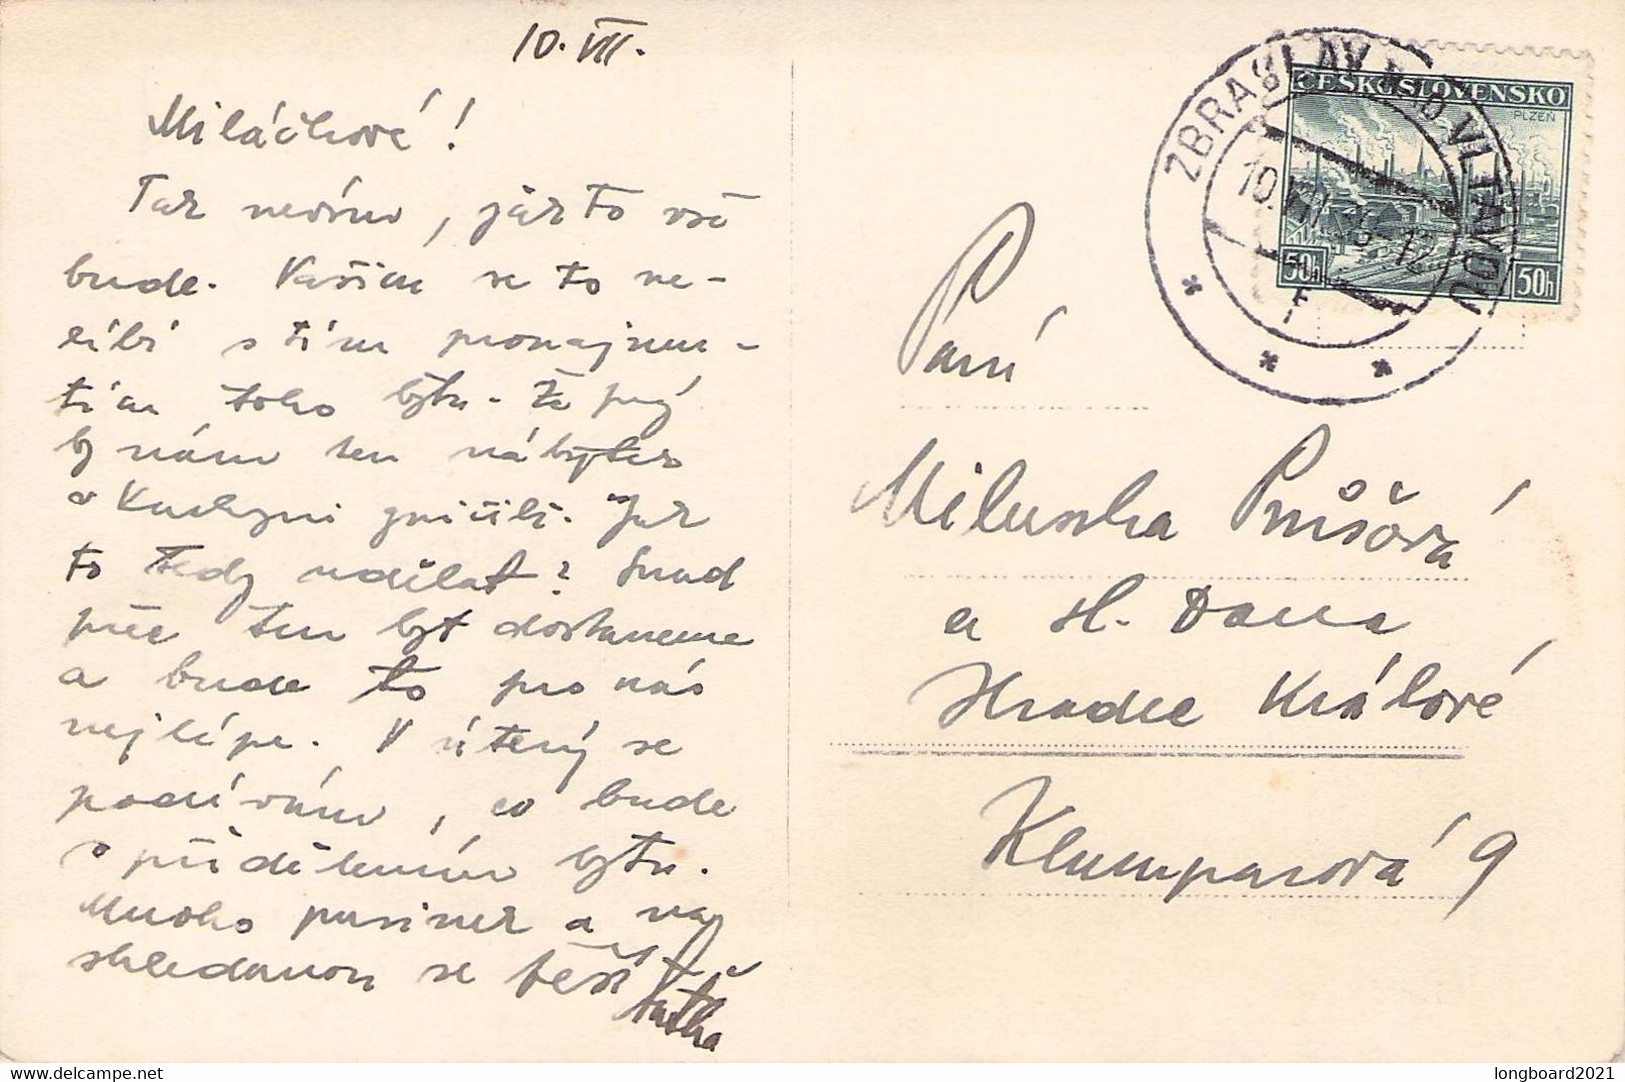 10. VII.
Miláčkové!
Tak nevím, jak to vše
bude. Vašim se to ne-
líbí s tím pronajmu-
tím toho bytu. Že prý
by nám ten nábytek
v kuchyni zničili. Jak
to tedy udělat? Snad
přec ten byt dostaneme
a bude to pro nás
nejlépe. V úterý se
podívám, co bude
s přidělením bytu.
Mnoho pusinek a na
shledanou se těší
Paní
Miluška Průšová
a sl. Dana
Hradec Králové
Klumparová 9
ZBRASLAV NAD VLTAVOU
10.VII. 12
ČESKOSLOVENSKO
PLZEŇ
50h 50h
longboard2021